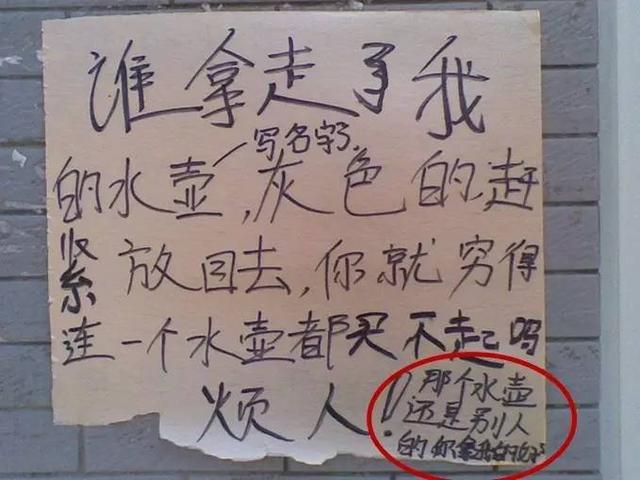 谁拿走了我
写名字了
的水壶,灰色的,赶
紧放回去,你就穷得
连一个水壶都买不起吗
烦人!
那个水壶
还是别人
的你拿我的